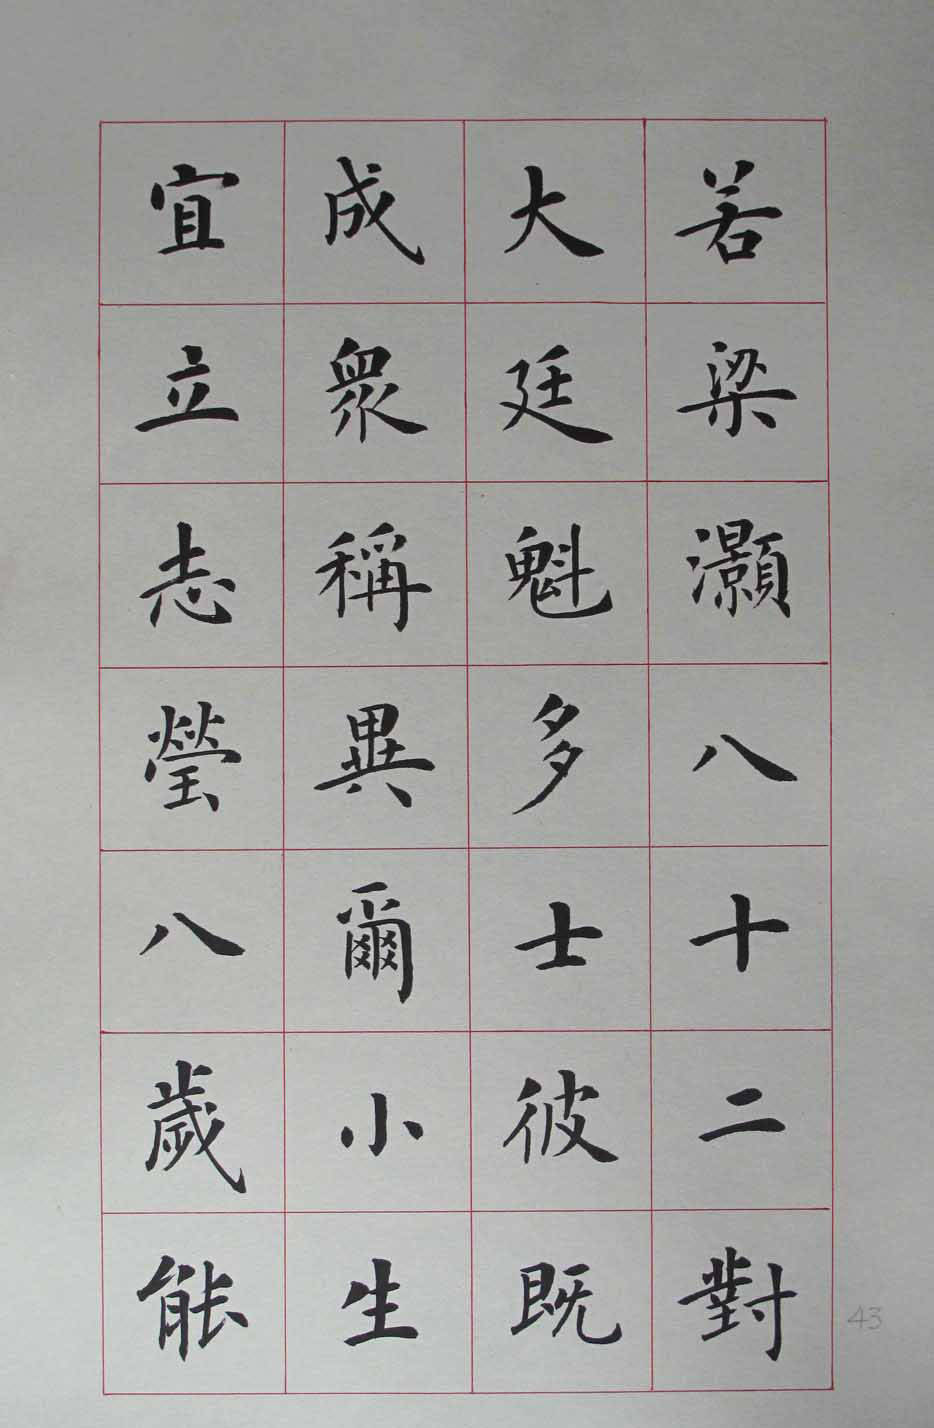 若梁灝八十二對
大廷魁多士彼既
成衆稱異爾小生
宜立志瑩八歲能
43